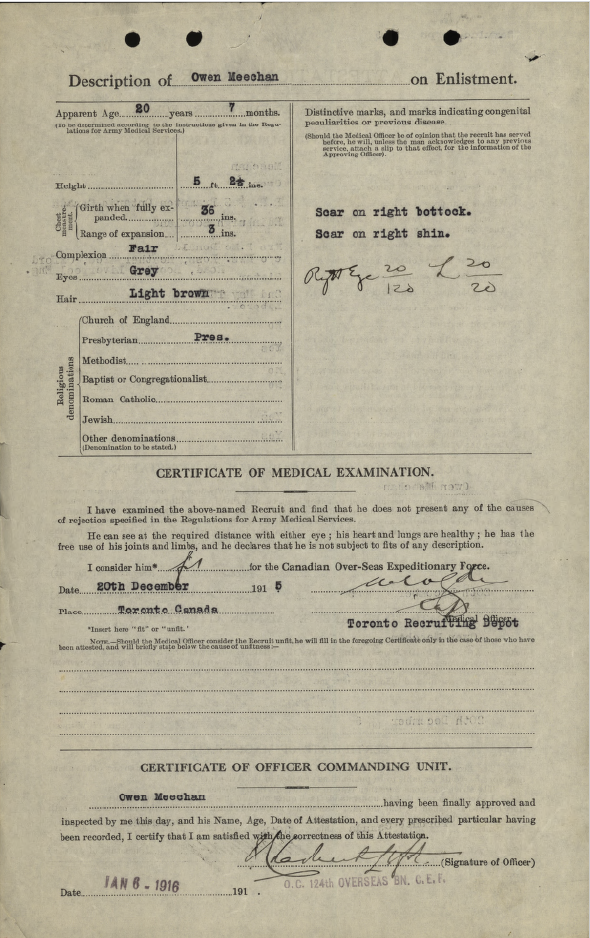 Description of Owen Meechan on Enlistment.
Apparent Age 20 years 7 months.
(To be determined according to the instructions given in the Regulations for Army Medical Services.)
Height 5 ft. 2½ ins.
Chest measurement.
Girth when fully expanded 36 ins.
Range of expansion 3 ins.
Complexion Fair
Eyes Grey
Hair Light brown
Religious denominations
Church of England
Presbyterian Pres.
Methodist
Baptist or Congregationalist
Roman Catholic
Jewish
Other denominations
(Denomination to be stated.)
Distinctive marks, and marks indicating congenital
peculiarities or previous disease.
(Should the Medical Officer be of opinion that the recruit has served
before, he will, unless the man acknowledges to any previous
service, attach a slip to that effect, for the information of the
Approving Officer).
Scar on right bottock.
Scar on right shin.
Right Eye 20/120 L 20/20
CERTIFICATE OF MEDICAL EXAMINATION.
I have examined the above-named Recruit and find that he does not present any of the causes
of rejection specified in the Regulations for Army Medical Services.
He can see at the required distance with either eye ; his heart and lungs are healthy ; he has the
free use of his joints and limbs, and he declares that he is not subject to fits of any description.
I consider him* fit for the Canadian Over-Seas Expeditionary Force.
Date 20th December 191 5
Place Toronto Canada
Capt
Medical Officer
Toronto Recruiting Depot
*Insert here "fit" or "unfit."
NOTE.—Should the Medical Officer consider the Recruit unfit, he will fill in the foregoing Certificate only in the case of those who have
been attested, and will briefly state below the cause of unfitness :—
CERTIFICATE OF OFFICER COMMANDING UNIT.
Owen Meechan having been finally approved and
inspected by me this day, and his Name, Age, Date of Attestation, and every prescribed particular having
been recorded, I certify that I am satisfied with the correctness of this Attestation.
(Signature of Officer)
O.C. 124th OVERSEAS BN. C.E.F.
Date JAN 6 - 1916 191 .